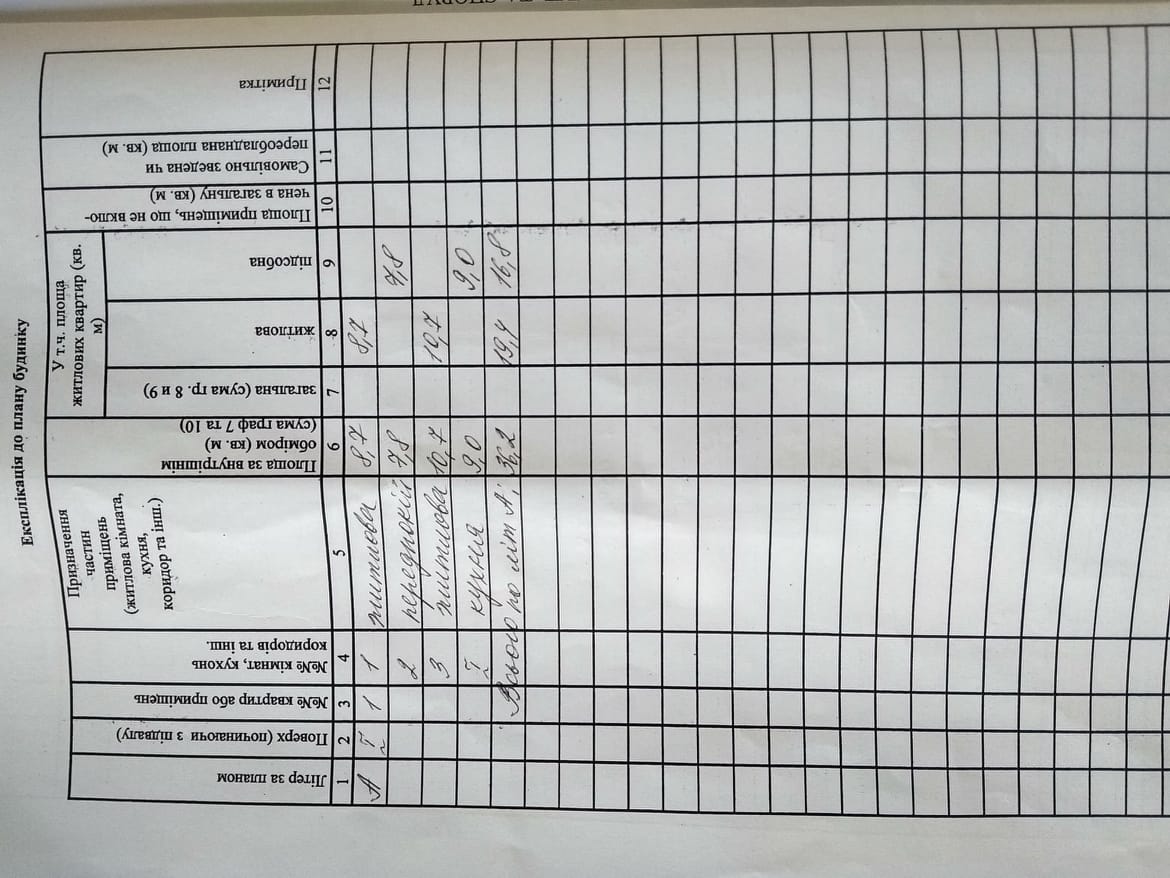 Експлікація до плану будинку
Літер за планом
Поверх (починаючи з підвалу)
№№ квартир або приміщень
№№ кімнат, кухонь
коридорів та інш.
Призначення
частин
приміщень
(житлова кімната,
кухня,
коридор та інш.)
Площа за внутрішнім
обміром (кв. м)
(сума граф 7 та 10)
У т.ч. площа
житлових квартир (кв.
м)
загальна (сума гр. 8 и 9)
житлова
підсобна
Площа приміщень, що не вклю-
чена в загальну (кв. м)
Самовільно зведена чи
переобладнана площа (кв. м)
Примітка
1 2 3 4 5 6 7 8 9 10 11 12
А I 1 1 житлова 8,7 8,7
2 передпокій 7,8 7,8
3 житлова 10,7 10,7
I кухня 9,0 9,0
Всього по літ А; 36,2 19,4 16,8